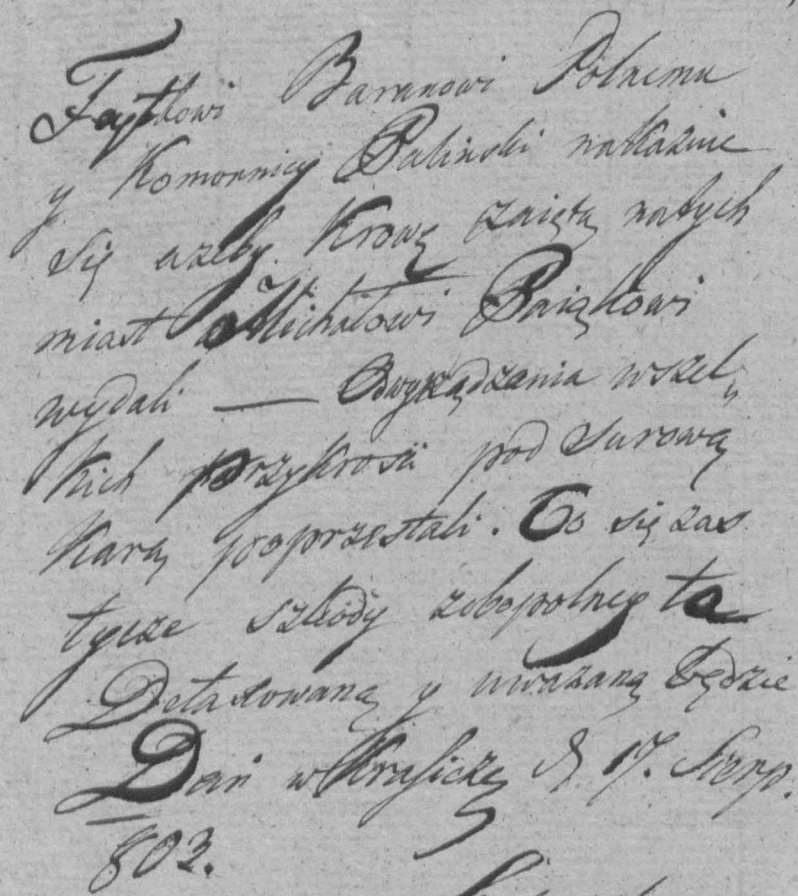 Faytkowi Baranowi Polnemu
y Komornicy Palinski nakazuie
się azeby Krowę zaiętą natych
miast Michałowi Paiąkowi
wydali — Odwyrządzania wszel
kich przykrosci pod surową
Karą poprzestali. Co się zas
tycze szkody zobopolney ta
Detaxowaną y uwazaną będzie
Dan w Krasiczy d 17. Sierp.
803.